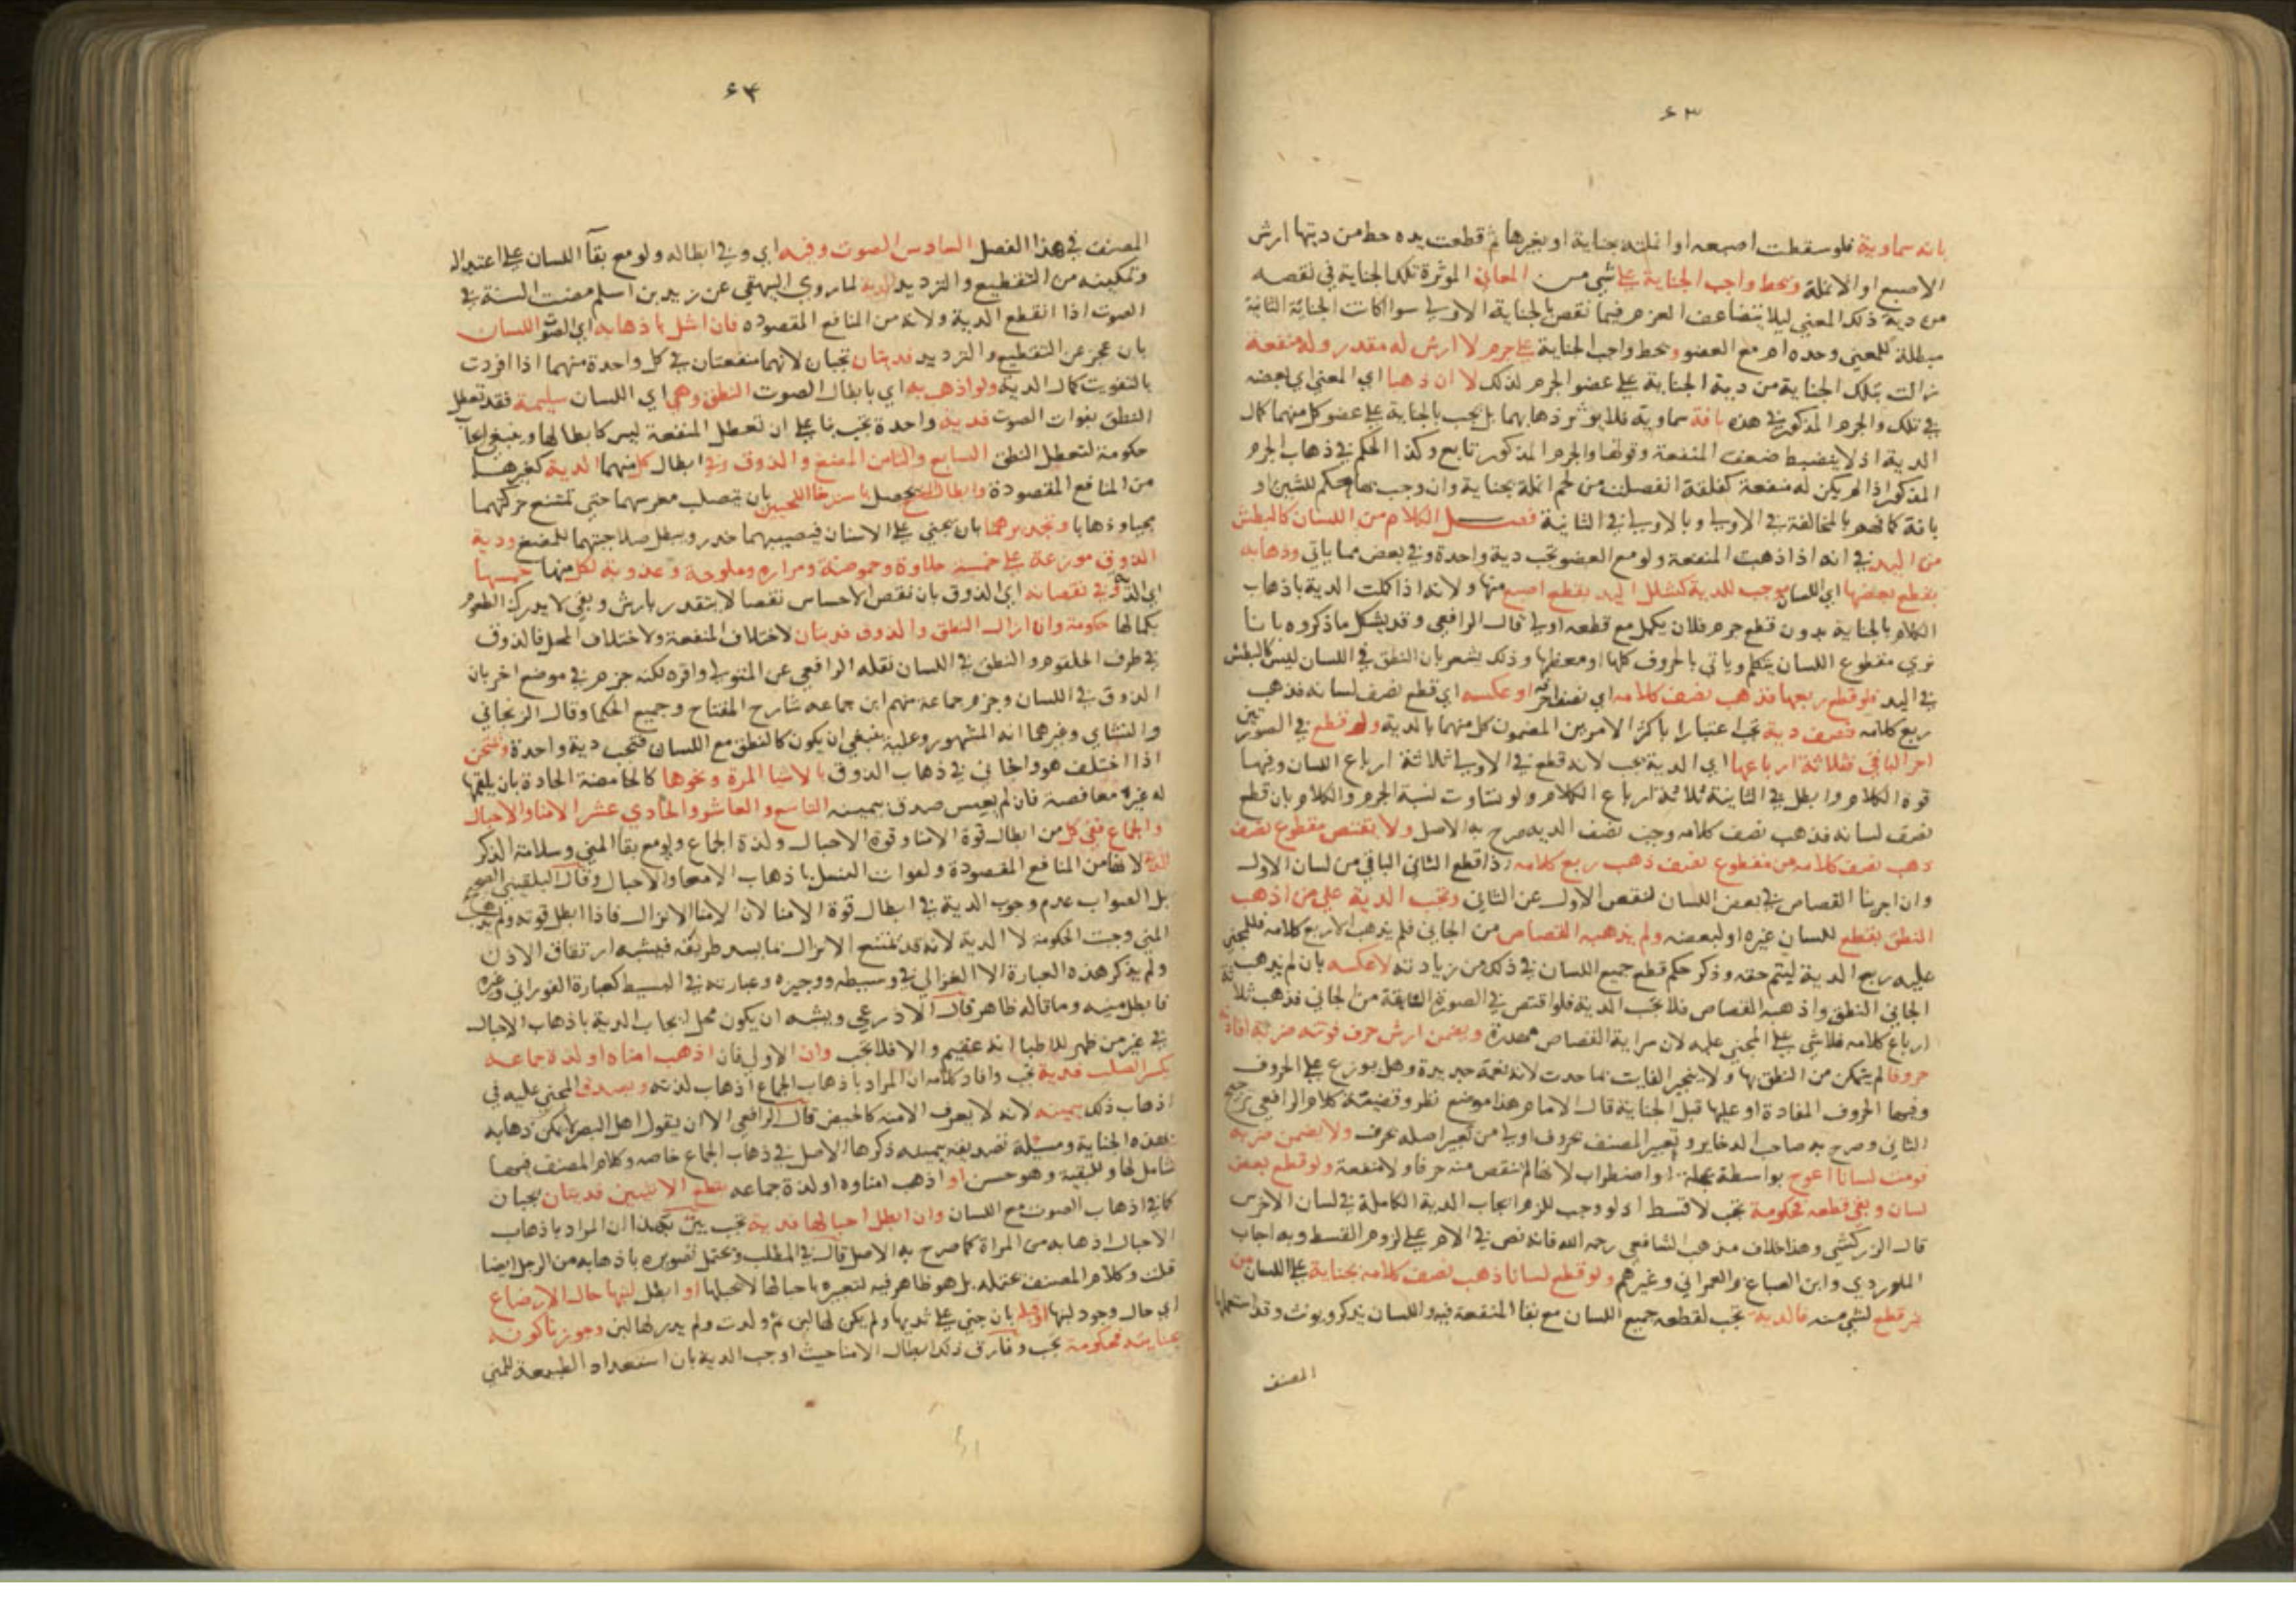 ٦٣
بانه سماوية فلو سقطت اصبعه او انملته بجناية او بغيرها ثم قطعت يده حط من ديتها ارش
الاصبع او الانملة ويحط واجب الجناية على شي من المعاني الموثرة تلك الجناية في نقصه
من دية ذلك المعني ليلا يتضاعف الغرم فيما نقص بالجناية الاولي سوا اكانت الجناية الثانية
مبطلة للمعني وحده ام مع العضو ويحط واجب الجناية على جرم لا ارش له مقدر وله منفعة
زالت بتلك الجناية من دية الجناية على عضو الجرم لذلك لا ان ذهبا اي المعني اي بعضه
في تلك والجرم المذكور في هذه بافة سماوية فلا يوثر ذهابهما بل تجب بالجناية على عضو كل منهما كمال
الدية اذ لا ينضبط ضعف المنفعة وقوتها والجرم المذكور تابع وكذا الحكم في ذهاب الجرم
المذكور اذا لم يكن له منفعة كفلقة انفصلت من لحم انملة بجناية وان وجب بها حكم للشين او
بانة كما فهم بالمخالفة في الاولي وبالاولي في الثانية فصل الكلام من اللسان كالبطش
من اليد في انه اذا ذهبت المنفعة ولو مع العضو تجب دية واحدة وفي بعض مما ياتي وذهابه
بقطع بعضها اي اللسان موجب للدية كشلل اليد بقطع اصبع منها ولانه اذا كملت الدية باذهاب
الكلام بالجناية بدون قطع جرم فلان يكمل مع قطعه اولي قال الرافعي وقد يشكل ما ذكروه بانا
نري مقطوع اللسان يتكلم وياتي بالحروف كلها او معظمها وذلك يشعر بان النطق في اللسان ليس كالبطش
في اليد فلو قطع ربعها فذهب نصف كلامه اي نصف احرفه او عكسه اي قطع نصف لسانه فذهب
ربع كلامه فنصف دية تجب اعتبارا باكثر الامرين المضمون كل منهما بالدية ولو قطع في الصورتين
اخر الباقي فثلاثة ارباعها اي الدية تجب لانه قطع في الاولي ثلاثة ارباع اللسان وفيها
قوة الكلام وابطل في الثانية ثلاثة ارباع الكلام ولو تساوت نسبة الجرم والكلام بان قطع
نصف لسانه فذهب نصف كلامه وجب نصف الدية صرح به الاصل ولا يقتص مقطوع نصف
ذهب نصف كلامه من مقطوع نصف ذهب ربع كلامه اذا قطع الثاني الباقي من لسان الاول
وان اجرينا القصاص في بعض اللسان لنقص الاول عن الثاني وتجب الدية علي من اذهب
النطق بقطع للسان غيره او لبعضه ولم يذهبه القصاص من الجاني فلم يذهب الا ربع كلامه فللمجني
عليه ربع الدية ليتم حقه وذكر حكم قطع جميع اللسان في ذلك من زيادته لا عكسه بان لم يذهب
الجاني النطق واذهبه القصاص فلا تجب الدية فلو اقتص في الصورة السابقة من الجاني فذهب ثلاثة
ارباع كلامه فلا شي على المجني عليه لان سراية القصاص مهدرة ويضمن ارش حرف فوتته ضربة افادته
حروفا لم يتمكن من النطق بها ولا ينجبر الفايت بما حدث لانه نعمة جديدة وهل يوزع على الحروف
وفيها الحروف المفادة او عليها قبل الجناية قال الامام هذا موضع نظر وقضية كلام الرافعي ترجيح
الثاني وصرح به صاحب الدخاير وتعبير المصنف بحروف اولي من تعبير اصله بحرف ولا يضمن ضربة
قومت لسانا اعوج بواسطة عجلة او اضطراب لانها لم تنقص منه حرفا ولا منفعة ولو قطع بعض
لسان وبقي نطقه فحكومة تجب لا قسط اذ لو وجب للزم ايجاب الدية الكاملة في لسان الاخرس
قال الزركشي وهذا خلاف مذهب الشافعي رحمه الله فانه نص في الام على لزوم القسط وبه اجاب
الماوردي وابن الصباغ والعمراني وغيرهم ولو قطع لسانا ذهب نصف كلامه بجناية على اللسان من
غير قطع لشي منه فالدية تجب لقطعه جميع اللسان مع بقا المنفعة فيه واللسان يذكر ويونث وقد استعملها
المصنف
٦٤
المصنف في هذا الفصل السادس الصوت وفيه اي وفي ابطاله ولو مع بقا اللسان على اعتداله
وتمكينه من التقطيع والترديد الدية لما روي البيهقي عن زيد بن اسلم مضت السنة في
الصوت اذا انقطع الدية ولانه من المنافع المقصودة فان اشل باذهابه اي الصوت اللسان
بان عجز عن التقطيع والترديد فديتان تجبان لانهما منفعتان في كل واحدة منهما اذا افردت
بالتفويت كمال الدية ولو اذهب به اي بابطال الصوت النطق وهي اي اللسان سليمة فقد تعطل
النطق بفوات الصوت فدية واحدة تجب بنا على ان تعطل المنفعة ليس كابطالها وينبغي ايجاب
حكومة لتعطل النطق السابع والثامن المضغ والذوق وفي ابطال كل منهما الدية كغيرهما
من المنافع المقصودة وابطال المضغ يحصل باسترخا اللحيين بان يتصلب مغرسهما حتي تمتنع حركتهما
مجيا وذهابا وتخديرهما بان يجني على الاسنان فيصيبهما خدر ويبطل صلاحيتهما للمضغ ودية
الذوق موزعة على خمسة حلاوة وحموضة ومرارة وملوحة وعذوبة لكل منها خمسها
اي الدية وفي نقصانه اي الذوق بان نقص الاحساس نقصا لا يتقدر بارش وبقي لا يدرك الطعوم
بكمالها حكومة وان ازال النطق والذوق فديتان لاختلاف المنفعة ولاختلاف المحل فالذوق
في طرف الحلقوم والنطق في اللسان نقله الرافعي عن المتولي واقره لكنه جزم في موضع اخر بان
الذوق في اللسان وجزم جماعة منهم ابن جماعه شارح المفتاح وجميع الحكما وقال الزنجاني
والنشاي وغيرهما انه المشهور وعليه ينبغي ان يكون كالنطق مع اللسان فتجب دية واحدة ويمتحن
اذا اختلف هو والجاني في ذهاب الذوق بالاشيا المرة ونحوها كالحامضة الحادة بان يلقمها
له غيره معافصة فان لم يعبس صدق بيمينه التاسع والعاشر والحادي عشر الامنا والاحبال
والجماع ففي كل من ابطال قوة الامنا وقوة الاحبال ولذة الجماع ولو مع بقا المني وسلامة الذكر
الدية لانها من المنافع المقصودة ولفوات النسل باذهاب الامنا والاحبال وقال البلقيني الصحيح
بل الصواب عدم وجوب الدية في ابطال قوة الامنا لان الامنا الانزال فاذا ابطل قوته ولم يذهب
المني وجبت الحكومة لا الدية لانه قد يمتنع الانزال بما يسد طريقه فيشبه ارتتاق الاذن
ولم يذكر هذه العبارة الا الغزالي في وسيطه ووجيزه وعبارته في البسيط كعبارة الفوراني وغيره
فابطل منيه وما قاله ظاهر قال الاذرعي ويشبه ان يكون محل ايجاب الدية باذهاب الاحبال
في غير من ظهر للاطبا انه عقيم والا فلا تجب وان الاولي فان اذهب امناه او لذة جماعه
بكسر الصلب فدية تجب وافاد كلامه ان المراد باذهاب الجماع اذهاب لذته ويصدق المجني عليه في
اذهاب ذلك بيمينه لانه لا يعرف الا منه كالحيض قال الرافعي الا ان يقول اهل البصر لا يمكن ذهابه
بهذه الجناية ومسيلة تصديقه بيمينه ذكرها الاصل في ذهاب الجماع خاصه وكلام المصنف فيها
شامل لها وللبقية وهو حسن او اذهب امناوه او لذة جماعه بقطع الانثيين فديتان تجبان
كما في اذهاب الصوت مع اللسان وان ابطل احبالها فدية تجب بين بهذا ان المراد باذهاب
الاحبال اذهابه من المراة كما صرح به الاصل قال في المطلب ويحتمل تصويره باذهابه من الرجل ايضا
قلت وكلام المصنف يحتمله بل هو ظاهر فيه لتعبيره باحبالها لا بحبلها او ابطل لبنها حال الارضاع
اي حال وجود لبنها او قبله بان جني على ثديها ولم يكن لها لبن ثم ولدت ولم يدر لها لبن وجوز ناكونه
بجنايته فحكومة تجب وفارق ذلك ابطال الامنا حيث اوجب الدية بان استعداد الطبيعة للمني